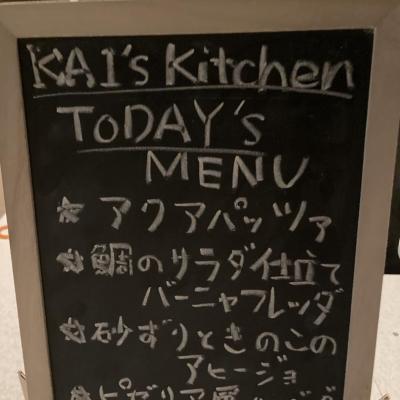 KAI's Kitchen
TODAY's
MENU
* アクアパッツァ
* 鯛のサラダ仕立て
バーニャフレッダ
* 砂ずりときのこの
アヒージョ
* ピザリア風